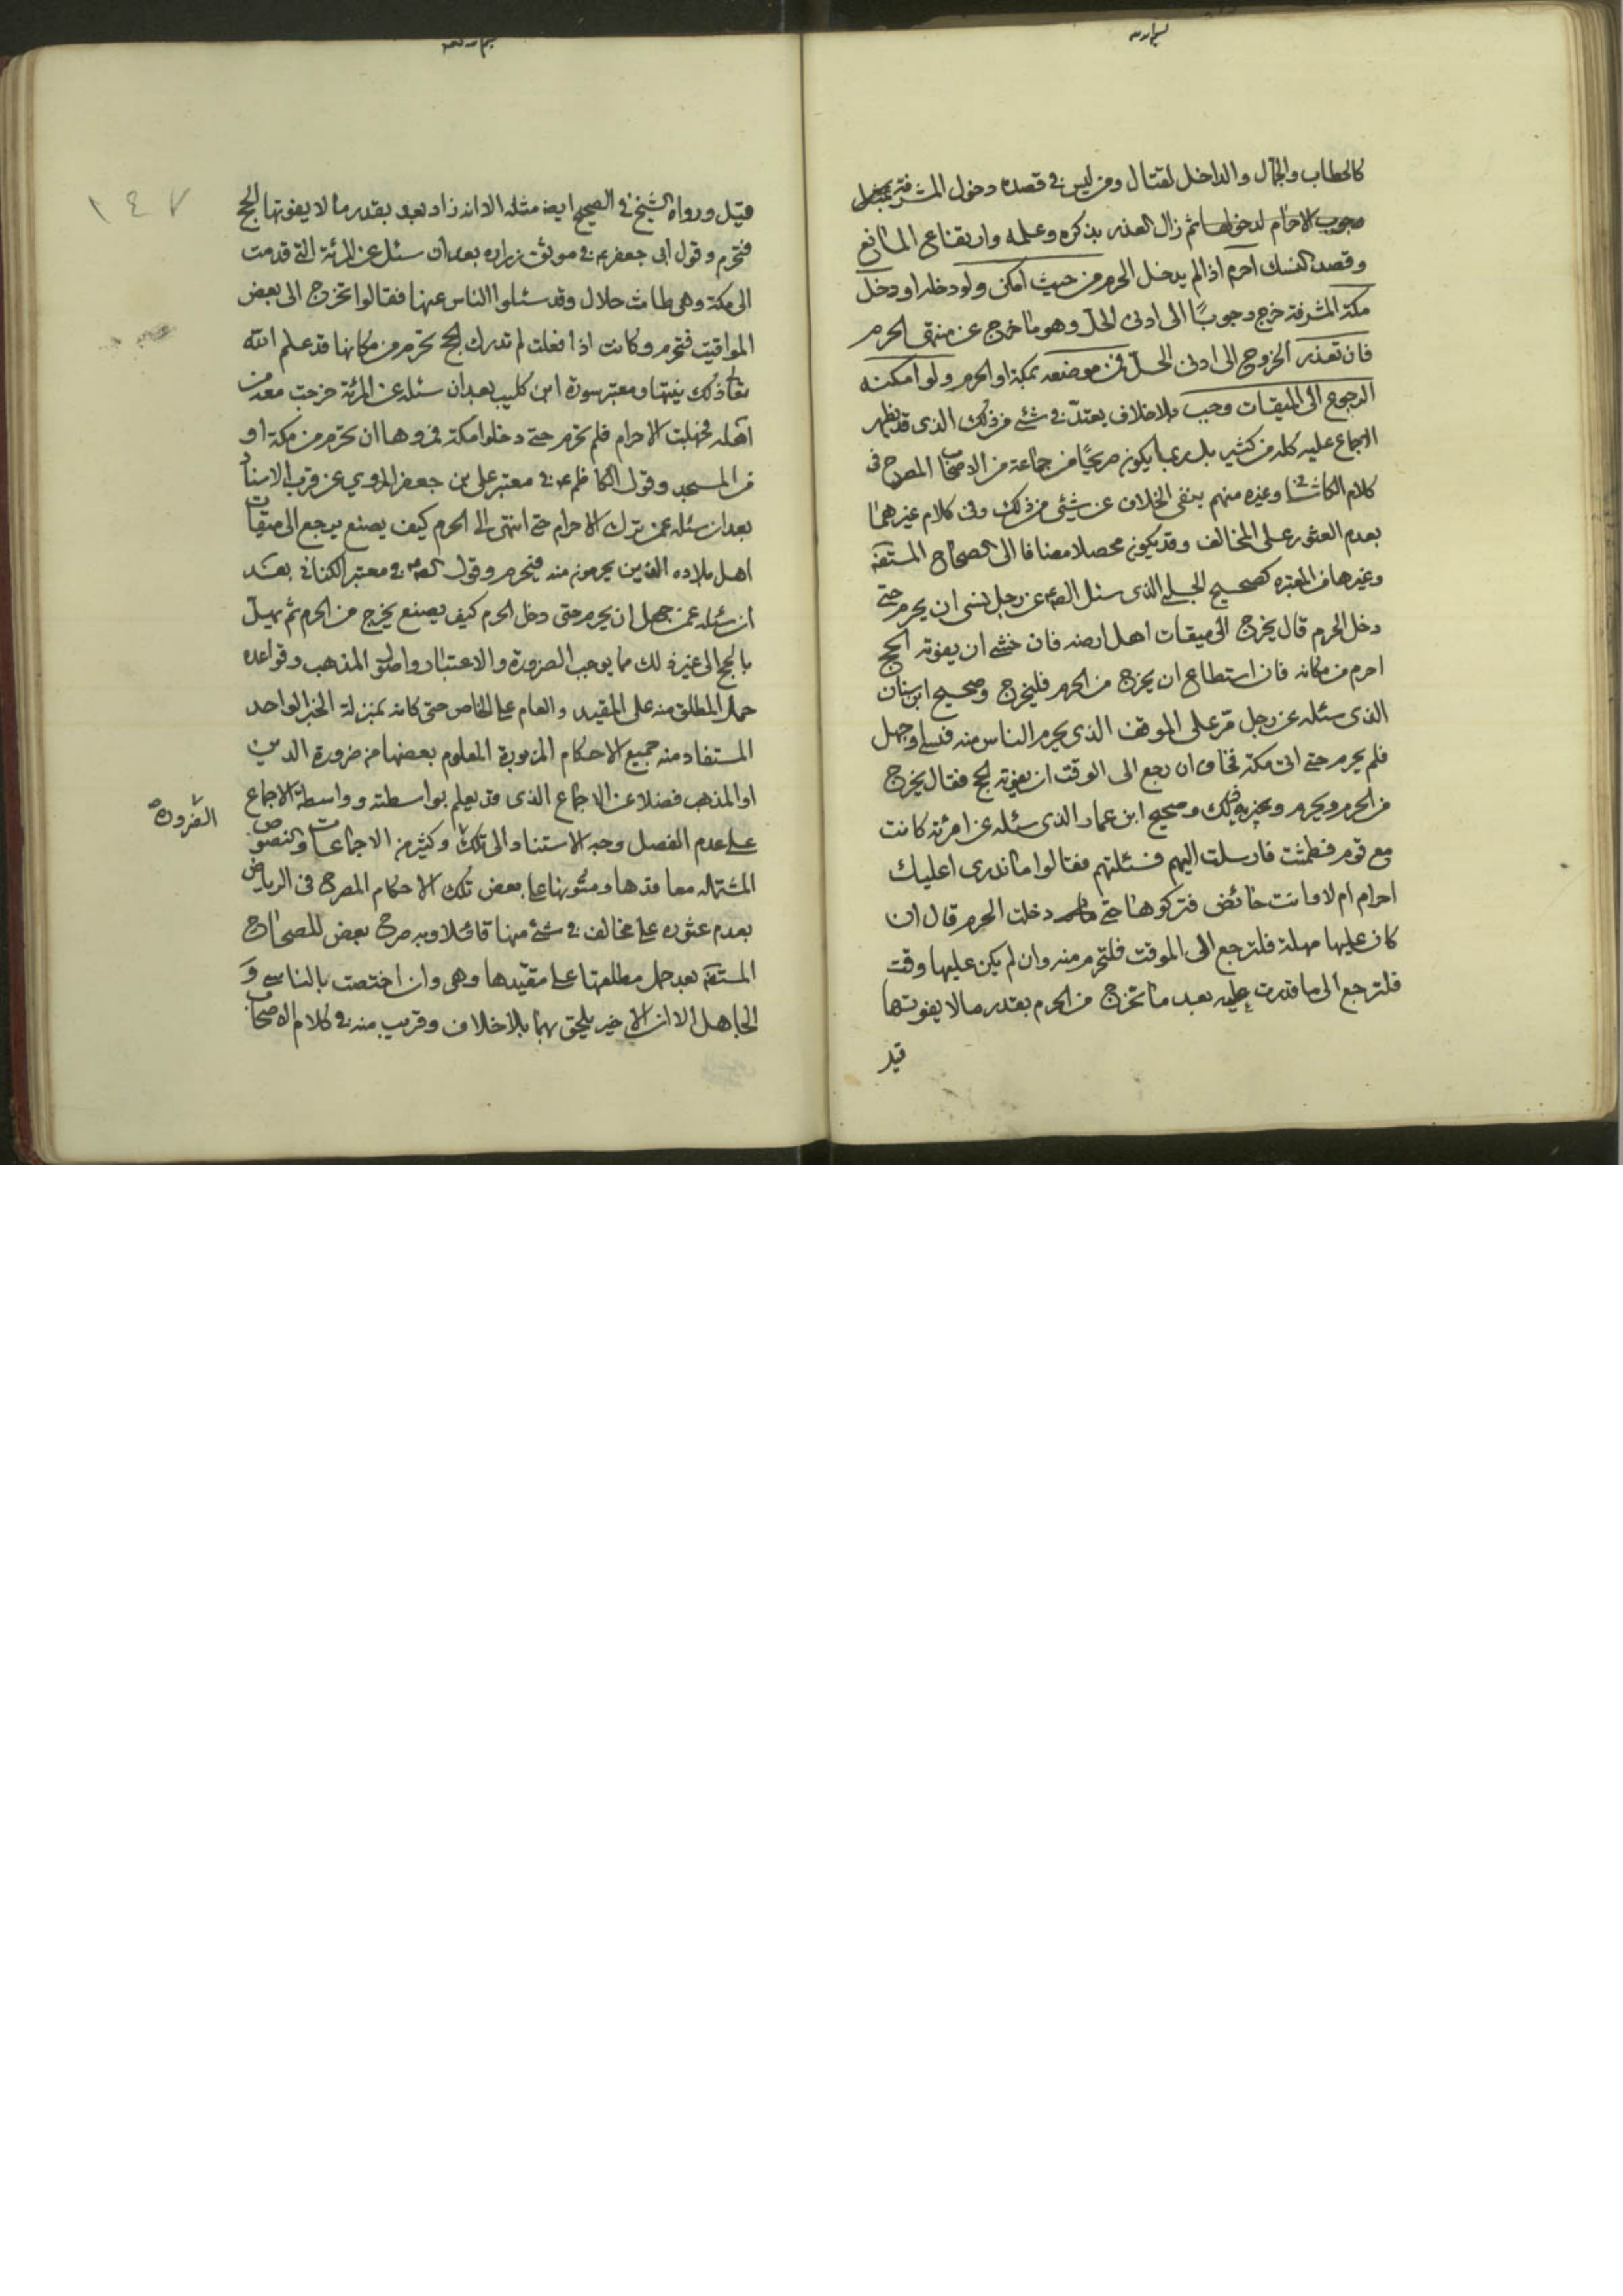 كالحطاب والجمال والداخل لقتال ومن ليس في قصده دخول المشرفة
وجوب الاحرام لدخولها ثم زال العذر بذكره وعلمه وارتفاع المانع
وقصد النسك احرم اذا لم يدخل الحرم من حيث امكن ولو دخله او دخل
مكة المشرفة خرج وجوبًا الى ادنى الحل وهو ما خرج عن منتهى الحرم
فان تعذر الخروج الى ادنى الحل فمن موضعه بمكة او الحرم ولو امكنه
الرجوع الى الميقات وجب بلا خلاف يعتد في شئ من ذلك الذي قد يظهر
الاجماع عليه كله من كثير بل ربما يكون صريحًا من جماعة من الاصحاب المصرح في
كلام الكاشاني وغيره منهم بنفى الخلاف عن شئ من ذلك وفي كلام غيرهما
بعدم العثور على المخالف وقد يكون محصلا مضافا الى الصحاح المستفة
وغيرها من المعتبره كصحيح الحلبي الذي سئل الصم عن رجل نسى ان يحرم حتى
دخل الحرم قال يخرج الى ميقات اهل ارضه فان خشى ان يفوته الحج
احرم من مكانه فان استطاع ان يخرج من الحرم فليخرج وصحيح ابن سنان
الذي سئله عن رجل مر على الموقف الذي يحرم الناس منه فنسى او جهل
فلم يحرم حتى اتى مكة فخاف ان رجع الى الوقت ان يفوته الحج فقال يخرج
من الحرم ويحرم ويجزيه ذلك وصحيح ابن عمار الذي سئله عن امرئة كانت
مع قوم فطمثت فارسلت اليهم فسئلتهم فقالوا ما ندرى اعليك
احرام ام لا وانت حائض فتركوها حتى دخلت الحرم قال ان
كان عليها مهلة فلترجع الى الموقت فلتحرم منه وان لم يكن عليها وقت
فلترجع الى ما قدرت عليه بعد ما تخرج من الحرم بقدر ما لا يفوتها
قيل
١٤٧
قيل ورواه الشيخ في الصحيح ايضا مثله الا انه زاد بعد بقدر ما لا يفوتها الحج
فتحرم وقول ابى جعفر ع في موثق زراره بعد ان سئل عن المرئة التي قدمت
الى مكة وهى طامث حلال وقد سئلوا الناس عنها فقالوا تخرج الى بعض
المواقيت فتحرم وكانت اذا فعلت لم تدرك الحج تحرم من مكانها قد علم الله
تعالى ذلك نيتها ومعتبر سورة ابن كليب بعد ان سئله عن المرئة خرجت معه من
اهله فجهلت الاحرام فلم تحرم حتى دخلوا مكة فمروها ان تحرم من مكة او
من المسجد وقول الكاظم ع في معتبر علي بن جعفر المروي عن قرب الاسناد
بعد ان سئله عمن ترك الاحرام حتى انتهى الى الحرم كيف يصنع يرجع الى ميقات
اهل بلاده الذين يحرمون منه فيحرم وقول الصم في معتبر الكناني بعد
ان سئله عمن جهل ان يحرم حتى دخل الحرم كيف يصنع يخرج من الحرم ثم يهل
بالحج الى غير ذلك مما يوجب الضرورة والاعتبار واطلق المذهب وقواعده
حمل المطلق منه على المقيد والعام على الخاص حتى كانه بمنزلة الخبر الواحد
المستفاد منه جميع الاحكام المزبورة المعلوم بعضها من ضرورة الدين
او المذهب فضلا عن الاجماع الذي قد يعلم بواسطته وواسطة الاجماع
الضرورة
على عدم الفصل وجه الاستناد الى تلك وكثير من الاجماعات والنصوص
المشتمله معاقدها ومتونها على بعض تلك الاحكام المصرح في الرياض
بعدم عثوره على مخالف في شئ منها قائلا وبه صرح بعض للصحاح
المستفة بعد حمل مطلقها على مقيدها وهى وان اختصت بالناسى و
الجاهل الا ان الاخير يلحق بهما بلا خلاف وقريب منه في كلام الاصحاب